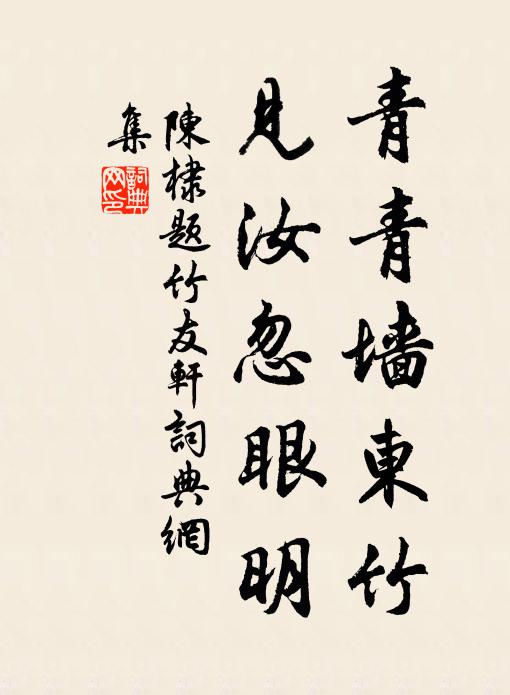 青青墙東竹
見汝忽眼明
陳棣题竹友軒詞典網
集
詞典
网印